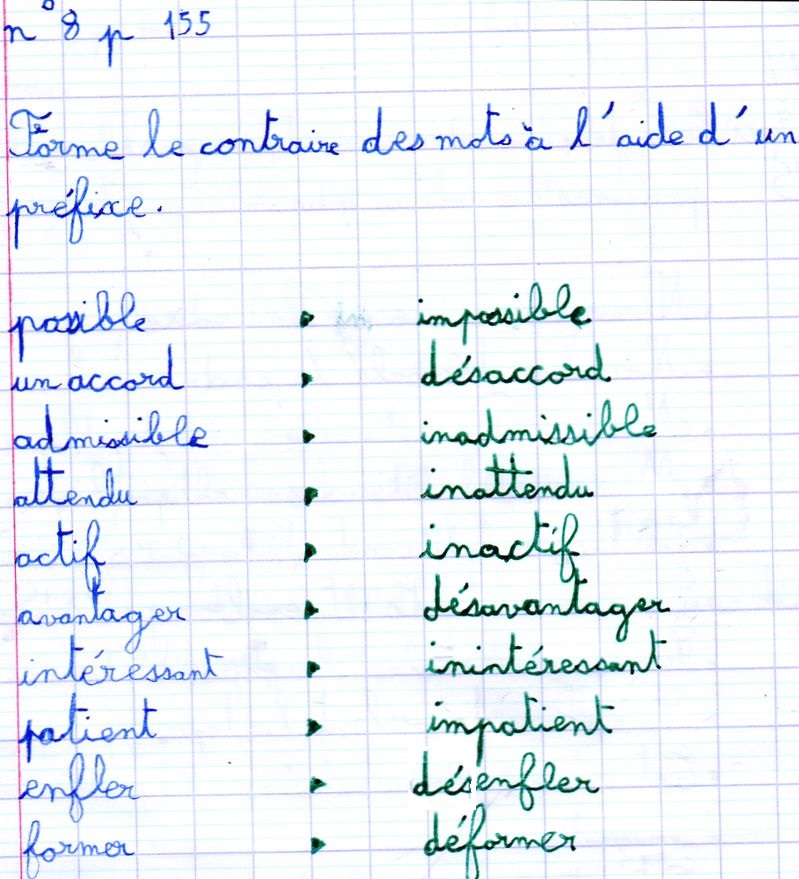 n° 8 p 155
Forme le contraire des mots à l'aide d'un
préfixe.
possible ▸ impossible
un accord ▸ désaccord
admissible ▸ inadmissible
attendu ▸ inattendu
actif ▸ inactif
avantager ▸ désavantager
intéressant ▸ inintéressant
patient ▸ impatient
enfler ▸ désenfler
former ▸ déformer